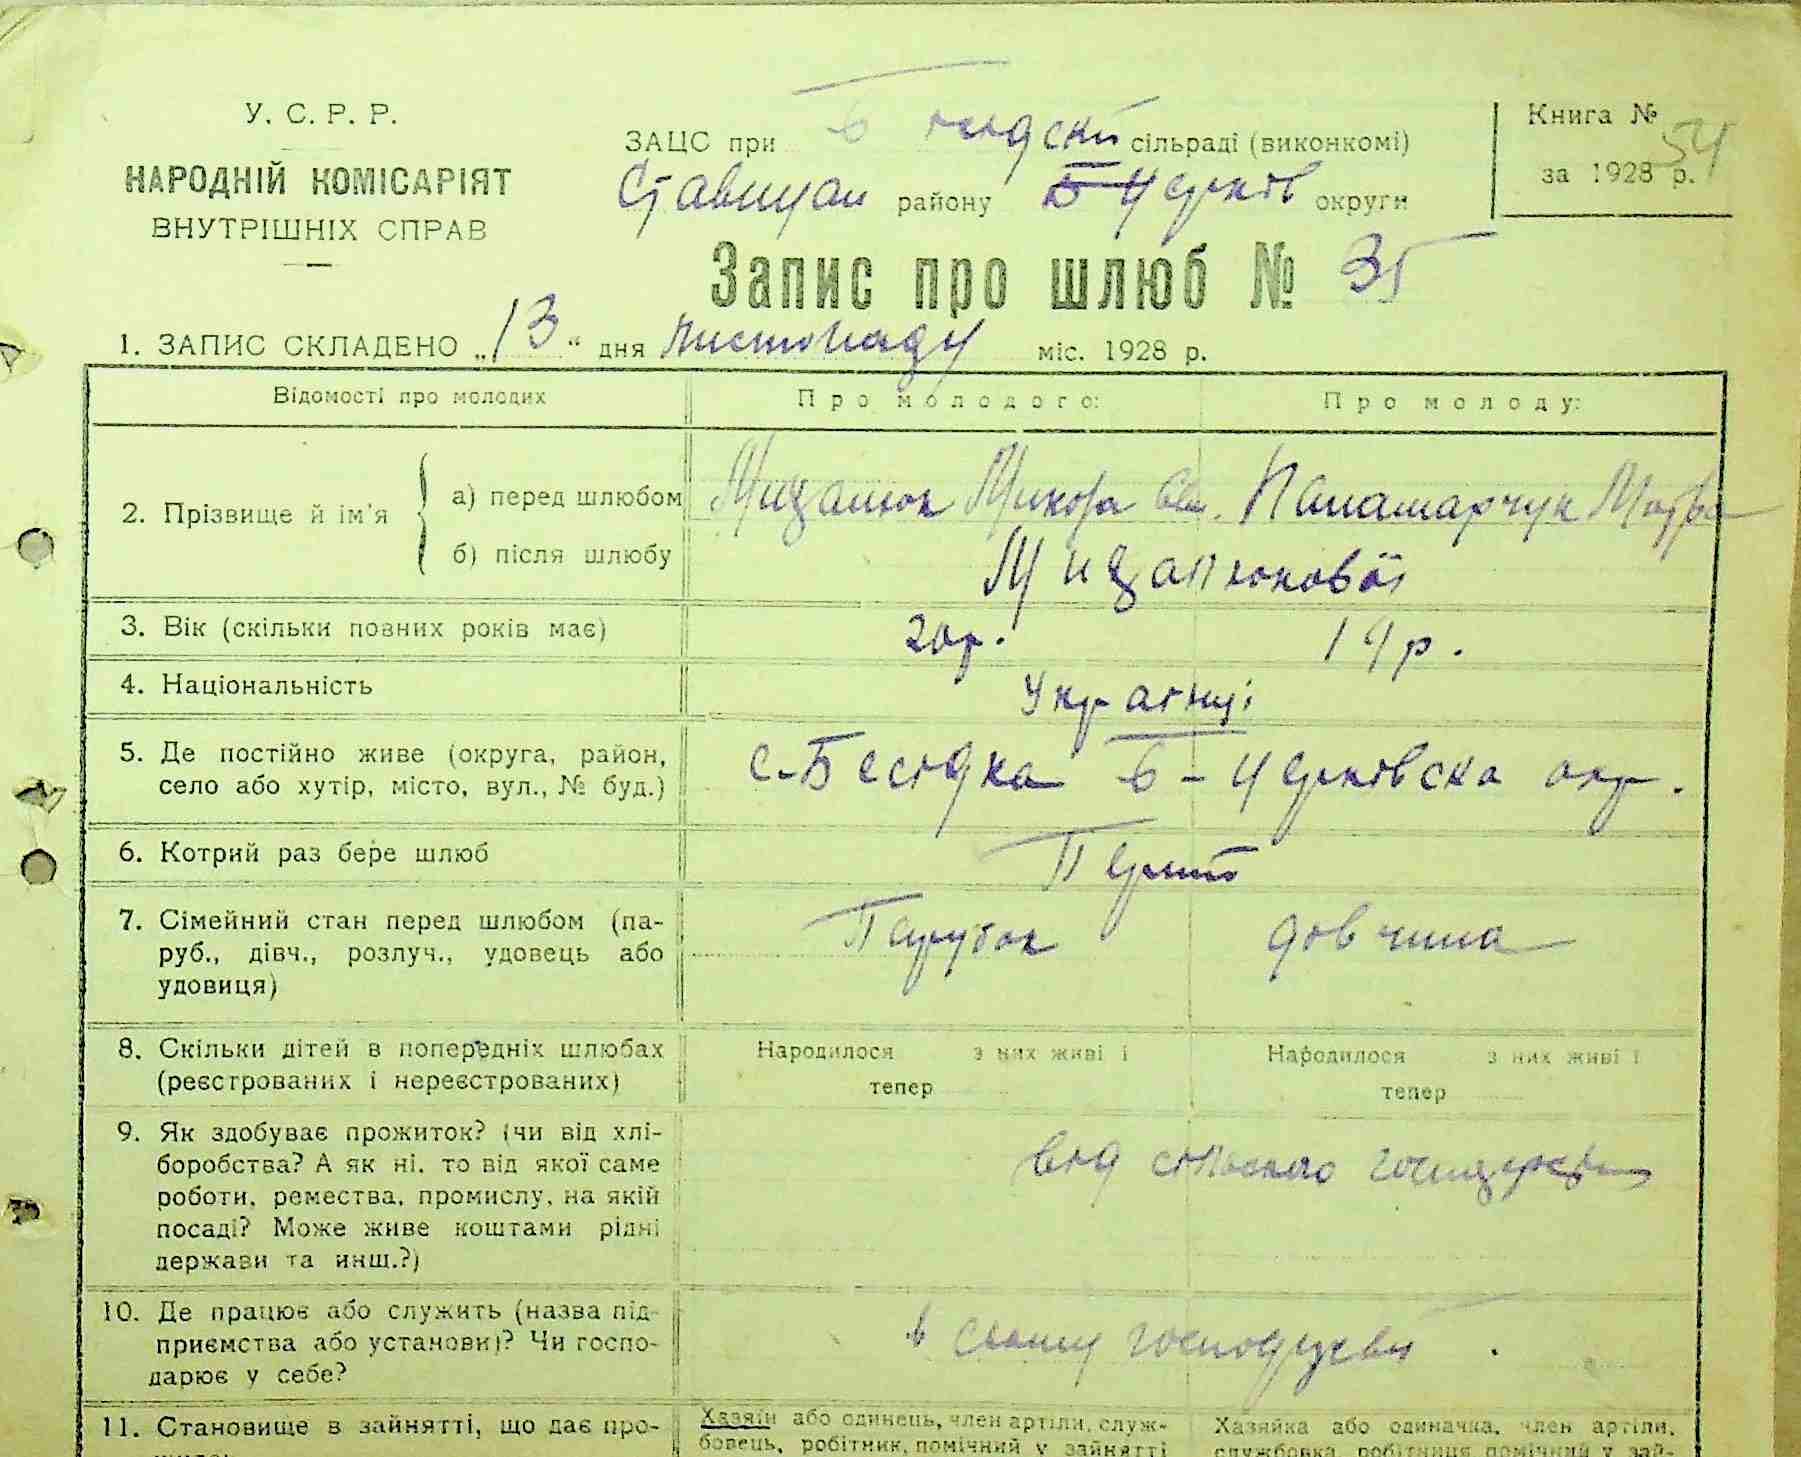 У. С. Р. Р.
НАРОДНІЙ КОМІСАРІЯТ
ВНУТРІШНІХ СПРАВ
ЗАЦС при сільраді (виконкомі)
району Б Церків округи
Книга № 54
за 1928 р.
Запис про шлюб № 35
1. ЗАПИС СКЛАДЕНО „13“ дня листопаду міс. 1928 р.
Відомості про молодих
Про молодого:
Про молоду:
2. Прізвище й ім'я
а) перед шлюбом
Микола Панамарчук
б) після шлюбу
3. Вік (скільки повних років має)
20 р.
19 р.
4. Національність
Українці
5. Де постійно живе (округа, район,
село або хутір, місто, вул., № буд.)
с. Бесідка Б-Церківска окр.
6. Котрий раз бере шлюб
7. Сімейний стан перед шлюбом (па-
руб., дівч., розлуч., удовець або
удовиця)
Парубок
дівчина
8. Скільки дітей в попередніх шлюбах
(реєстрованих і нереєстрованих)
Народилося з них живі і
тепер
Народилося з них живі і
тепер
9. Як здобуває прожиток? (чи від хлі-
боробства? А як ні, то від якої саме
роботи, ремества, промислу, на якій
посаді? Може живе коштами рідні
держави та инш.?)
від
10. Де працює або служить (назва під-
приємства або установи)? Чи госпо-
дарює у себе?
в
11. Становище в зайнятті, що дає про-
Хазяїн або одинець, член артіли, служ-
бовець, робітник, помічний у зайнятті
Хазяйка або одиначка, член артіли,
службовка, робітниця, помічний у зай-